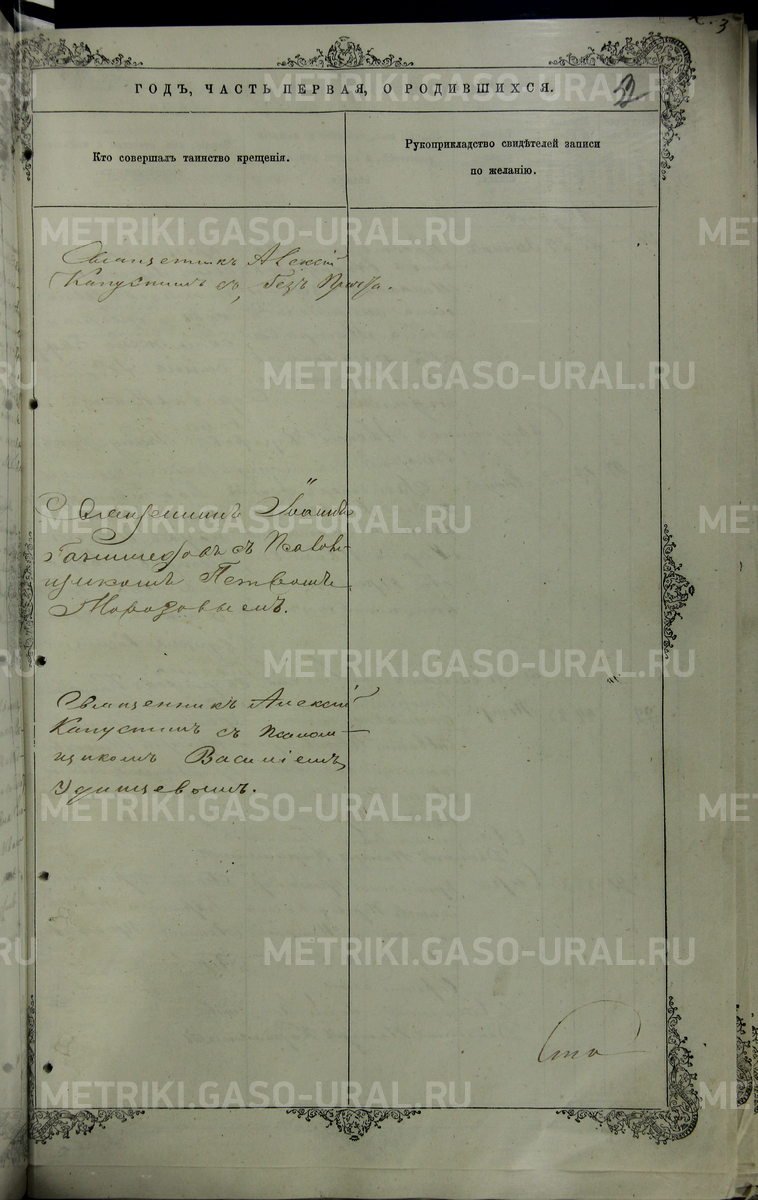 ГОДЪ, ЧАСТЬ ПЕРВАЯ, О РОДИВШИХСЯ.
Кто совершалъ таинство крещенія.
Рукоприкладство свидѣтелей записи
по желанію.
Священникъ Алексій
Капустинъ безъ
Священникъ Іоаннъ
съ Псалом-
щикомъ Петромъ
Морозовымъ.
Священникъ Алексій
Капустинъ съ Псалом-
щикомъ Василіемъ
Удинцевымъ.
METRIKI.GASO-URAL.RU